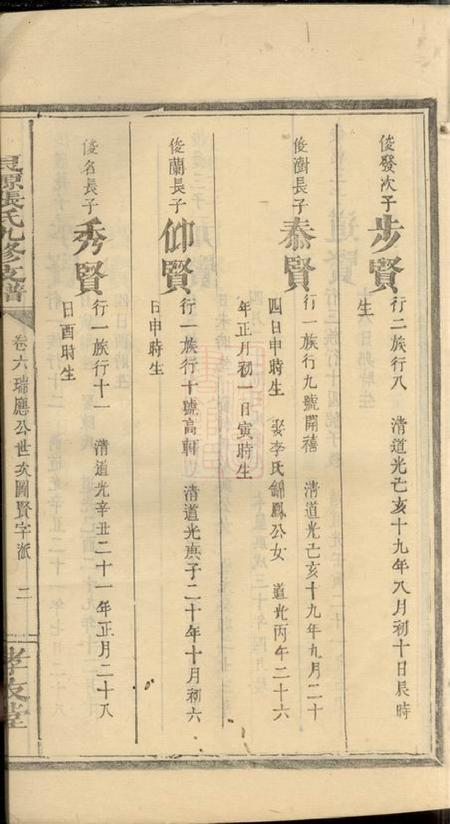 俊發次子
步賢
行二族行八　清道光己亥十九年八月初十日辰時
生
俊澍長子
泰賢
行一族行九號開禧　清道光己亥十九年九月二十
四日申時生　娶李氏錦鳳公女　道光丙午二十六
年正月初一日寅時生
俊蘭長子
仰賢
行一族行十號高軒　清道光庚子二十年十月初六
日申時生
俊名長子
秀賢
行一族行十一　清道光辛丑二十一年正月二十八
日酉時生
張氏九修支譜
卷六瑞應公世次圖賢字派　二
孝友堂